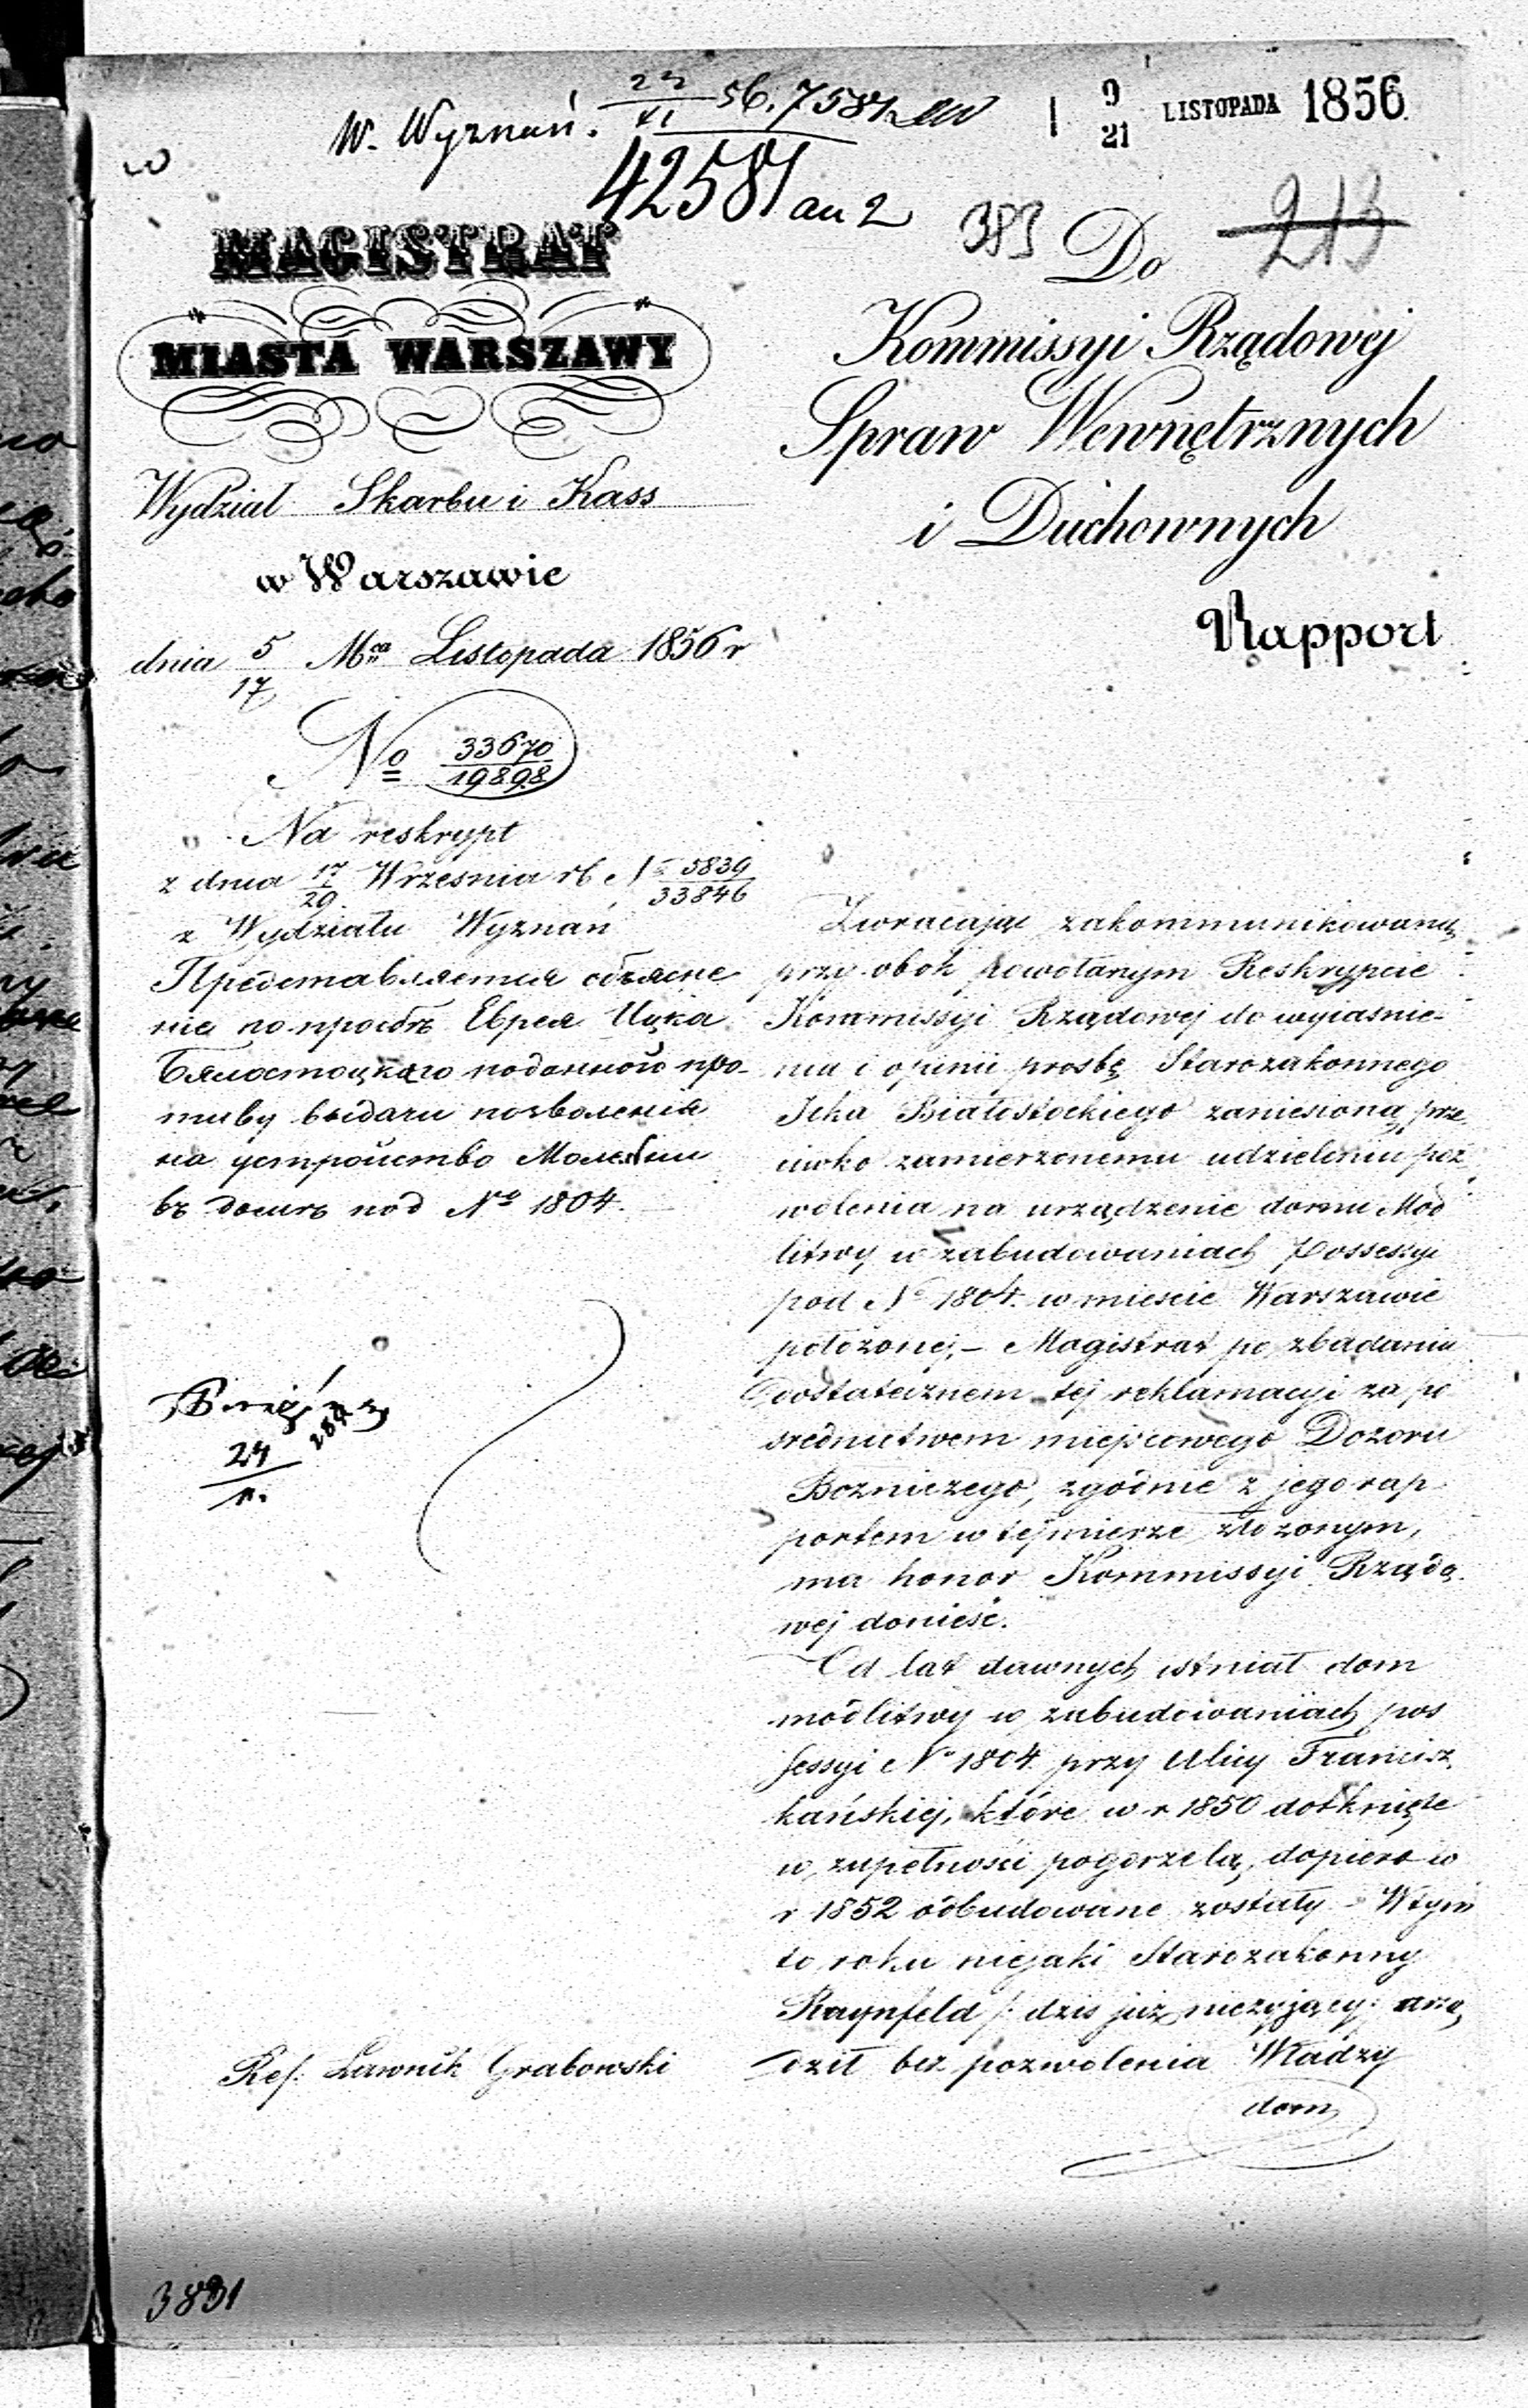 W. Wyznań. 22/XI 56. 7587
9/21 LISTOPADA 1856.
42587 an 2
383
213
MAGISTRAT
MIASTA WARSZAWY
Wydział Skarbu i Kass
w Warszawie
dnia 5/17 Mca Listopada 1856 r
No 33670/19898
Na reskrypt
z dnia 17/29 Września rb N 5839/33846
z Wydziału Wyznań
Представляется объясне
ние по просьбѣ Еврея Ицка
Бялостоцкаго поданной про-
тиву выдачи позволенія
на устройство Молельни
въ домѣ под № 1804.
24
11.
Ref. Ławnik Grabowski
3831
Do
Kommissyi Rządowej
Spraw Wewnętrznych
i Duchownych
Rapport
Zwracając zakommunikowaną
przy obok powołanym Reskrypcie
Kommissyi Rządowej do wyiaśnie-
nia i opinii prośbę Starozakonnego
Icka Białostockiego zaniesioną prze
ciwko zamierzonemu udzieleniu poz
wolenia na urządzenie domu Mod
litwy w zabudowaniach Possessyi
pod No 1804. w mieście Warszawie
położonej, – Magistrat po zbadaniu
dostatecznem tej reklamacyi za po
średnictwem miejscowego Dozoru
Bożniczego, zgodnie z jego rap
portem w tej mierze złożonym,
ma honor Kommissyi Rządo
wej donieść.
Od lat dawnych istniał dom
modlitwy w zabudowaniach pos
sessyi No 1804 przy Ulicy Francisz
kańskiej, które w r 1850 dotknięte
w zupełności pogorzelą, dopiero w
r 1852 odbudowane zostały – W tym
to roku niejaki Starozakonny
Raynfeld /: dziś już nieżyjący: urzą
dził bez pozwolenia Władzy
dom